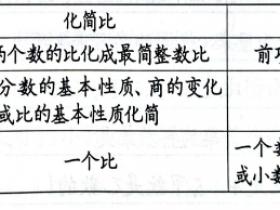 化简比
两个数的比化成最简整数比
前项
分数的基本性质、商的变化
或比的基本性质化简
一个比
一个数
或小数